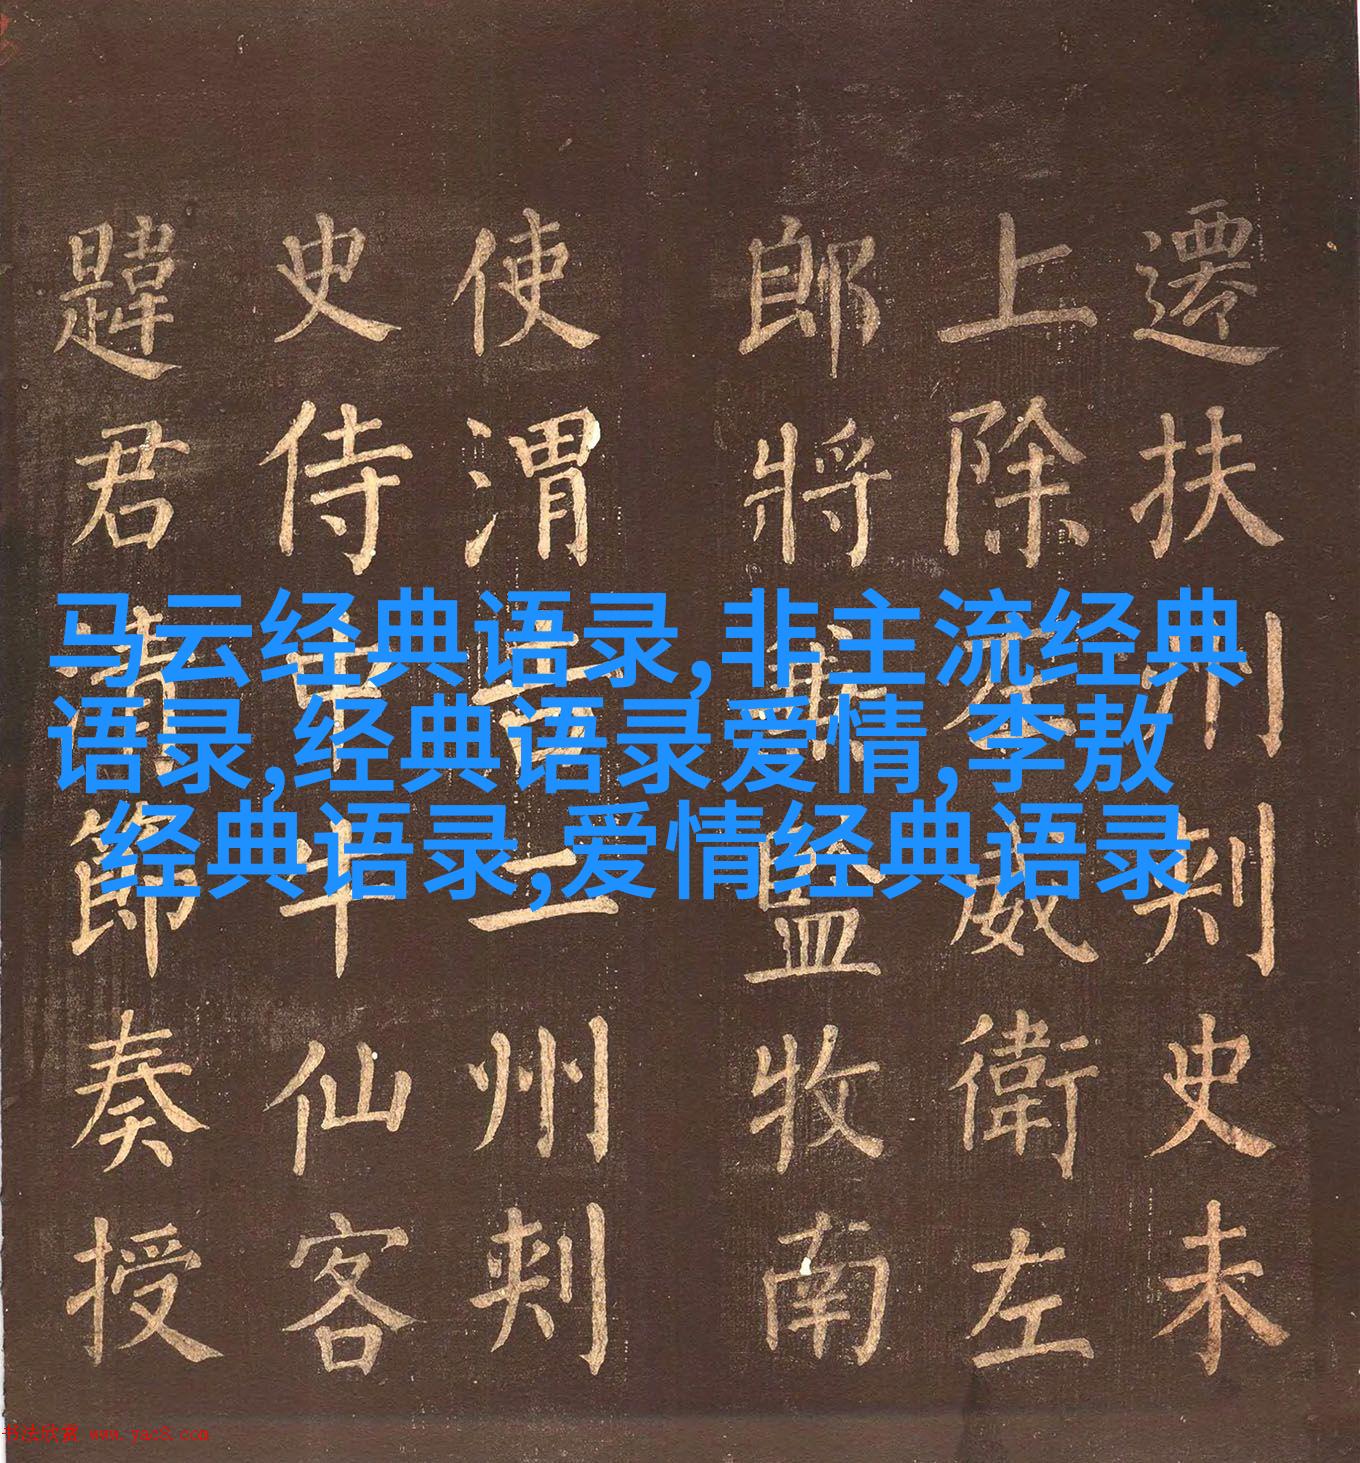 遷扶州刺史未
上除左威衛左
郎將監牧南
使渭二州刺
史侍中牛仙客
韙君清節奏授
马云经典语录,非主流经典
语录,经典语录爱情,李敖
经典语录,爱情经典语录
书法欣赏 www.yac8.com